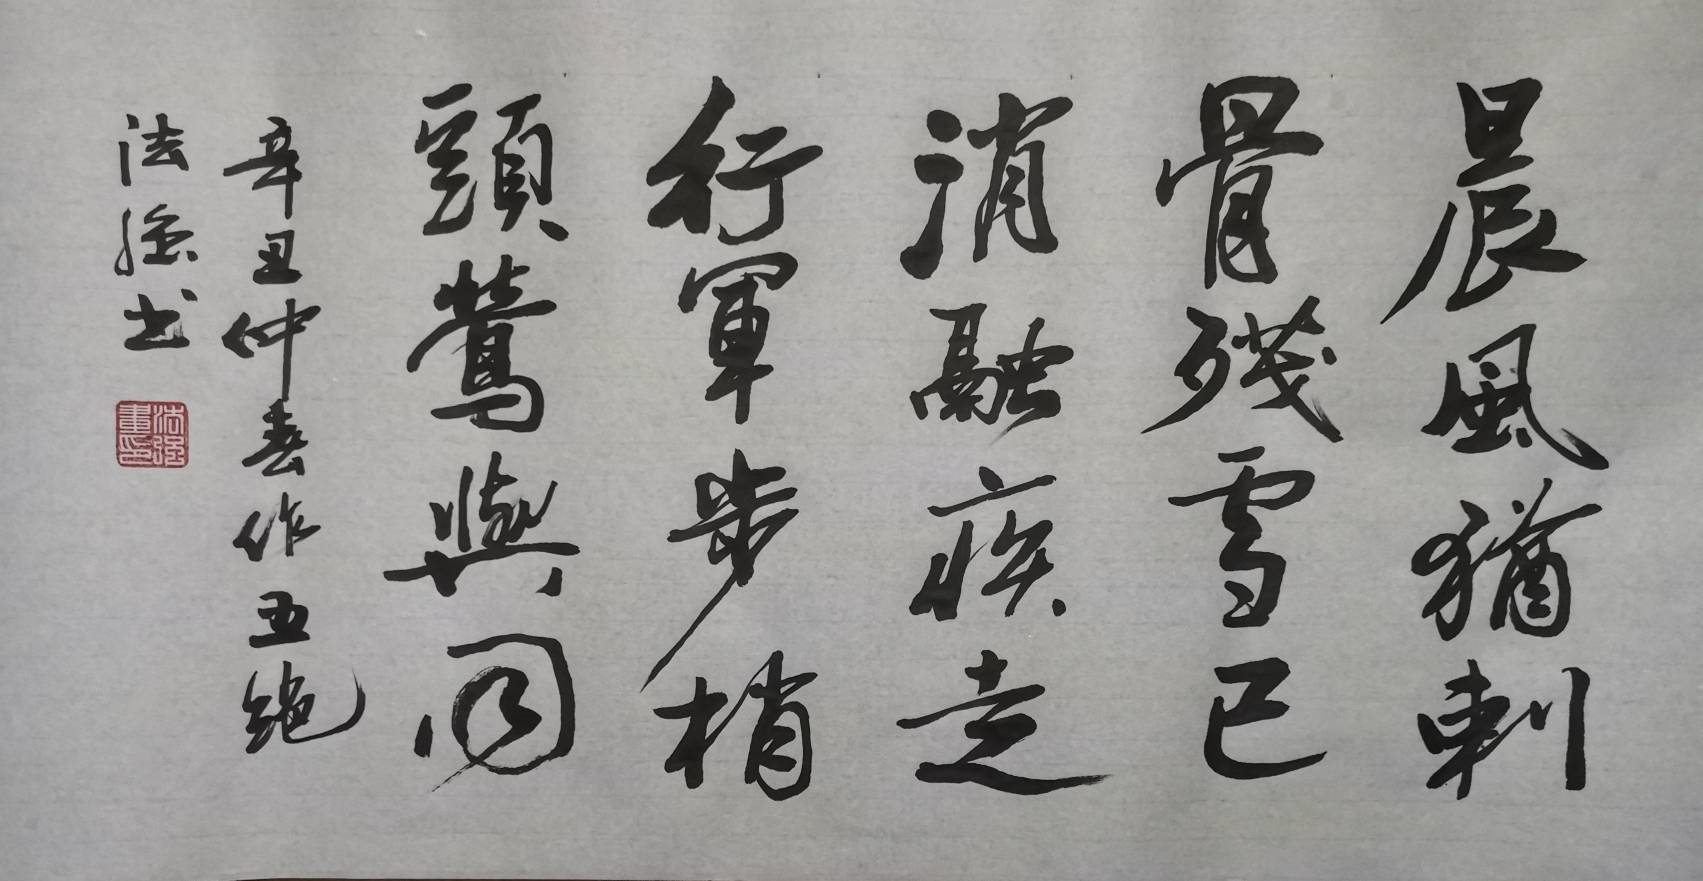 晨風猶刺
骨殘雪已
消融疾走
行軍步梢
頭鶯與同
辛丑仲春作五絕
法強书
法强書印